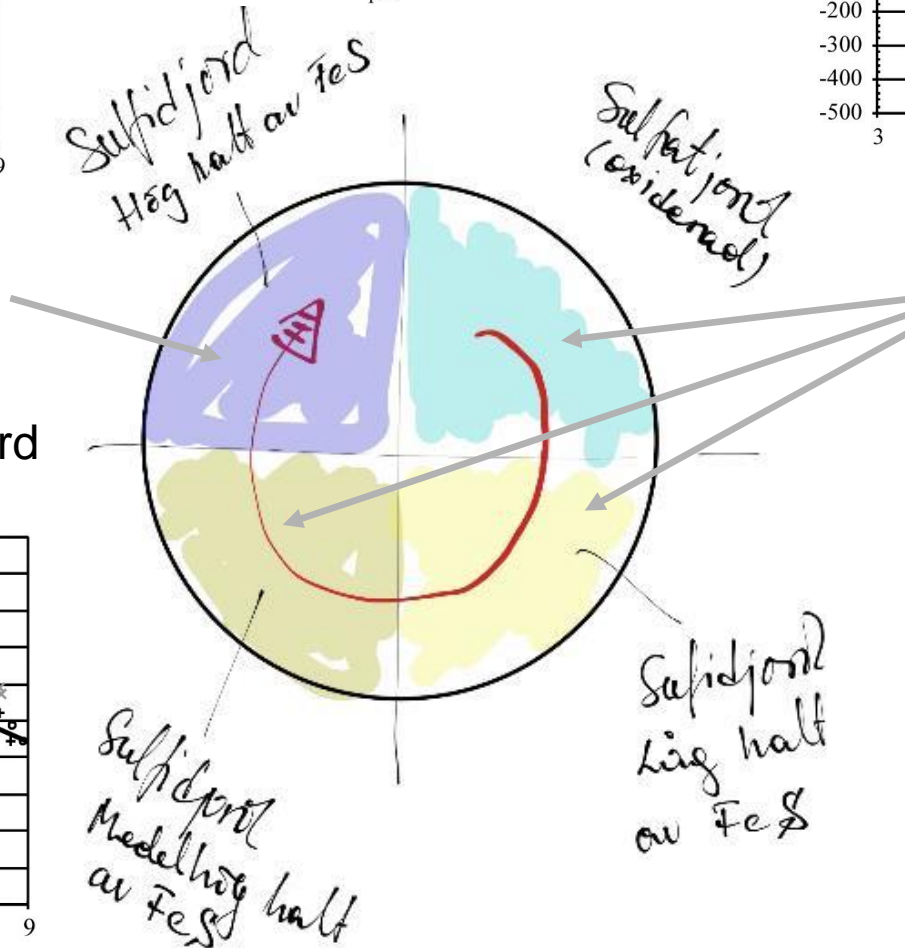 -200
-300
-400
-500
3
9
Sulfidjord
Hög halt av FeS
Sulfatjord
(oxiderad)
rd
Sulfidjord
Låg halt
av FeS
Sulfidjord
Medelhög halt
av FeS
9